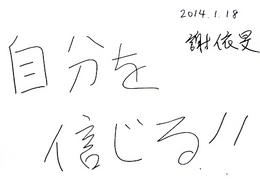 2014.1.18
謝依旻
自分を
信じる!!